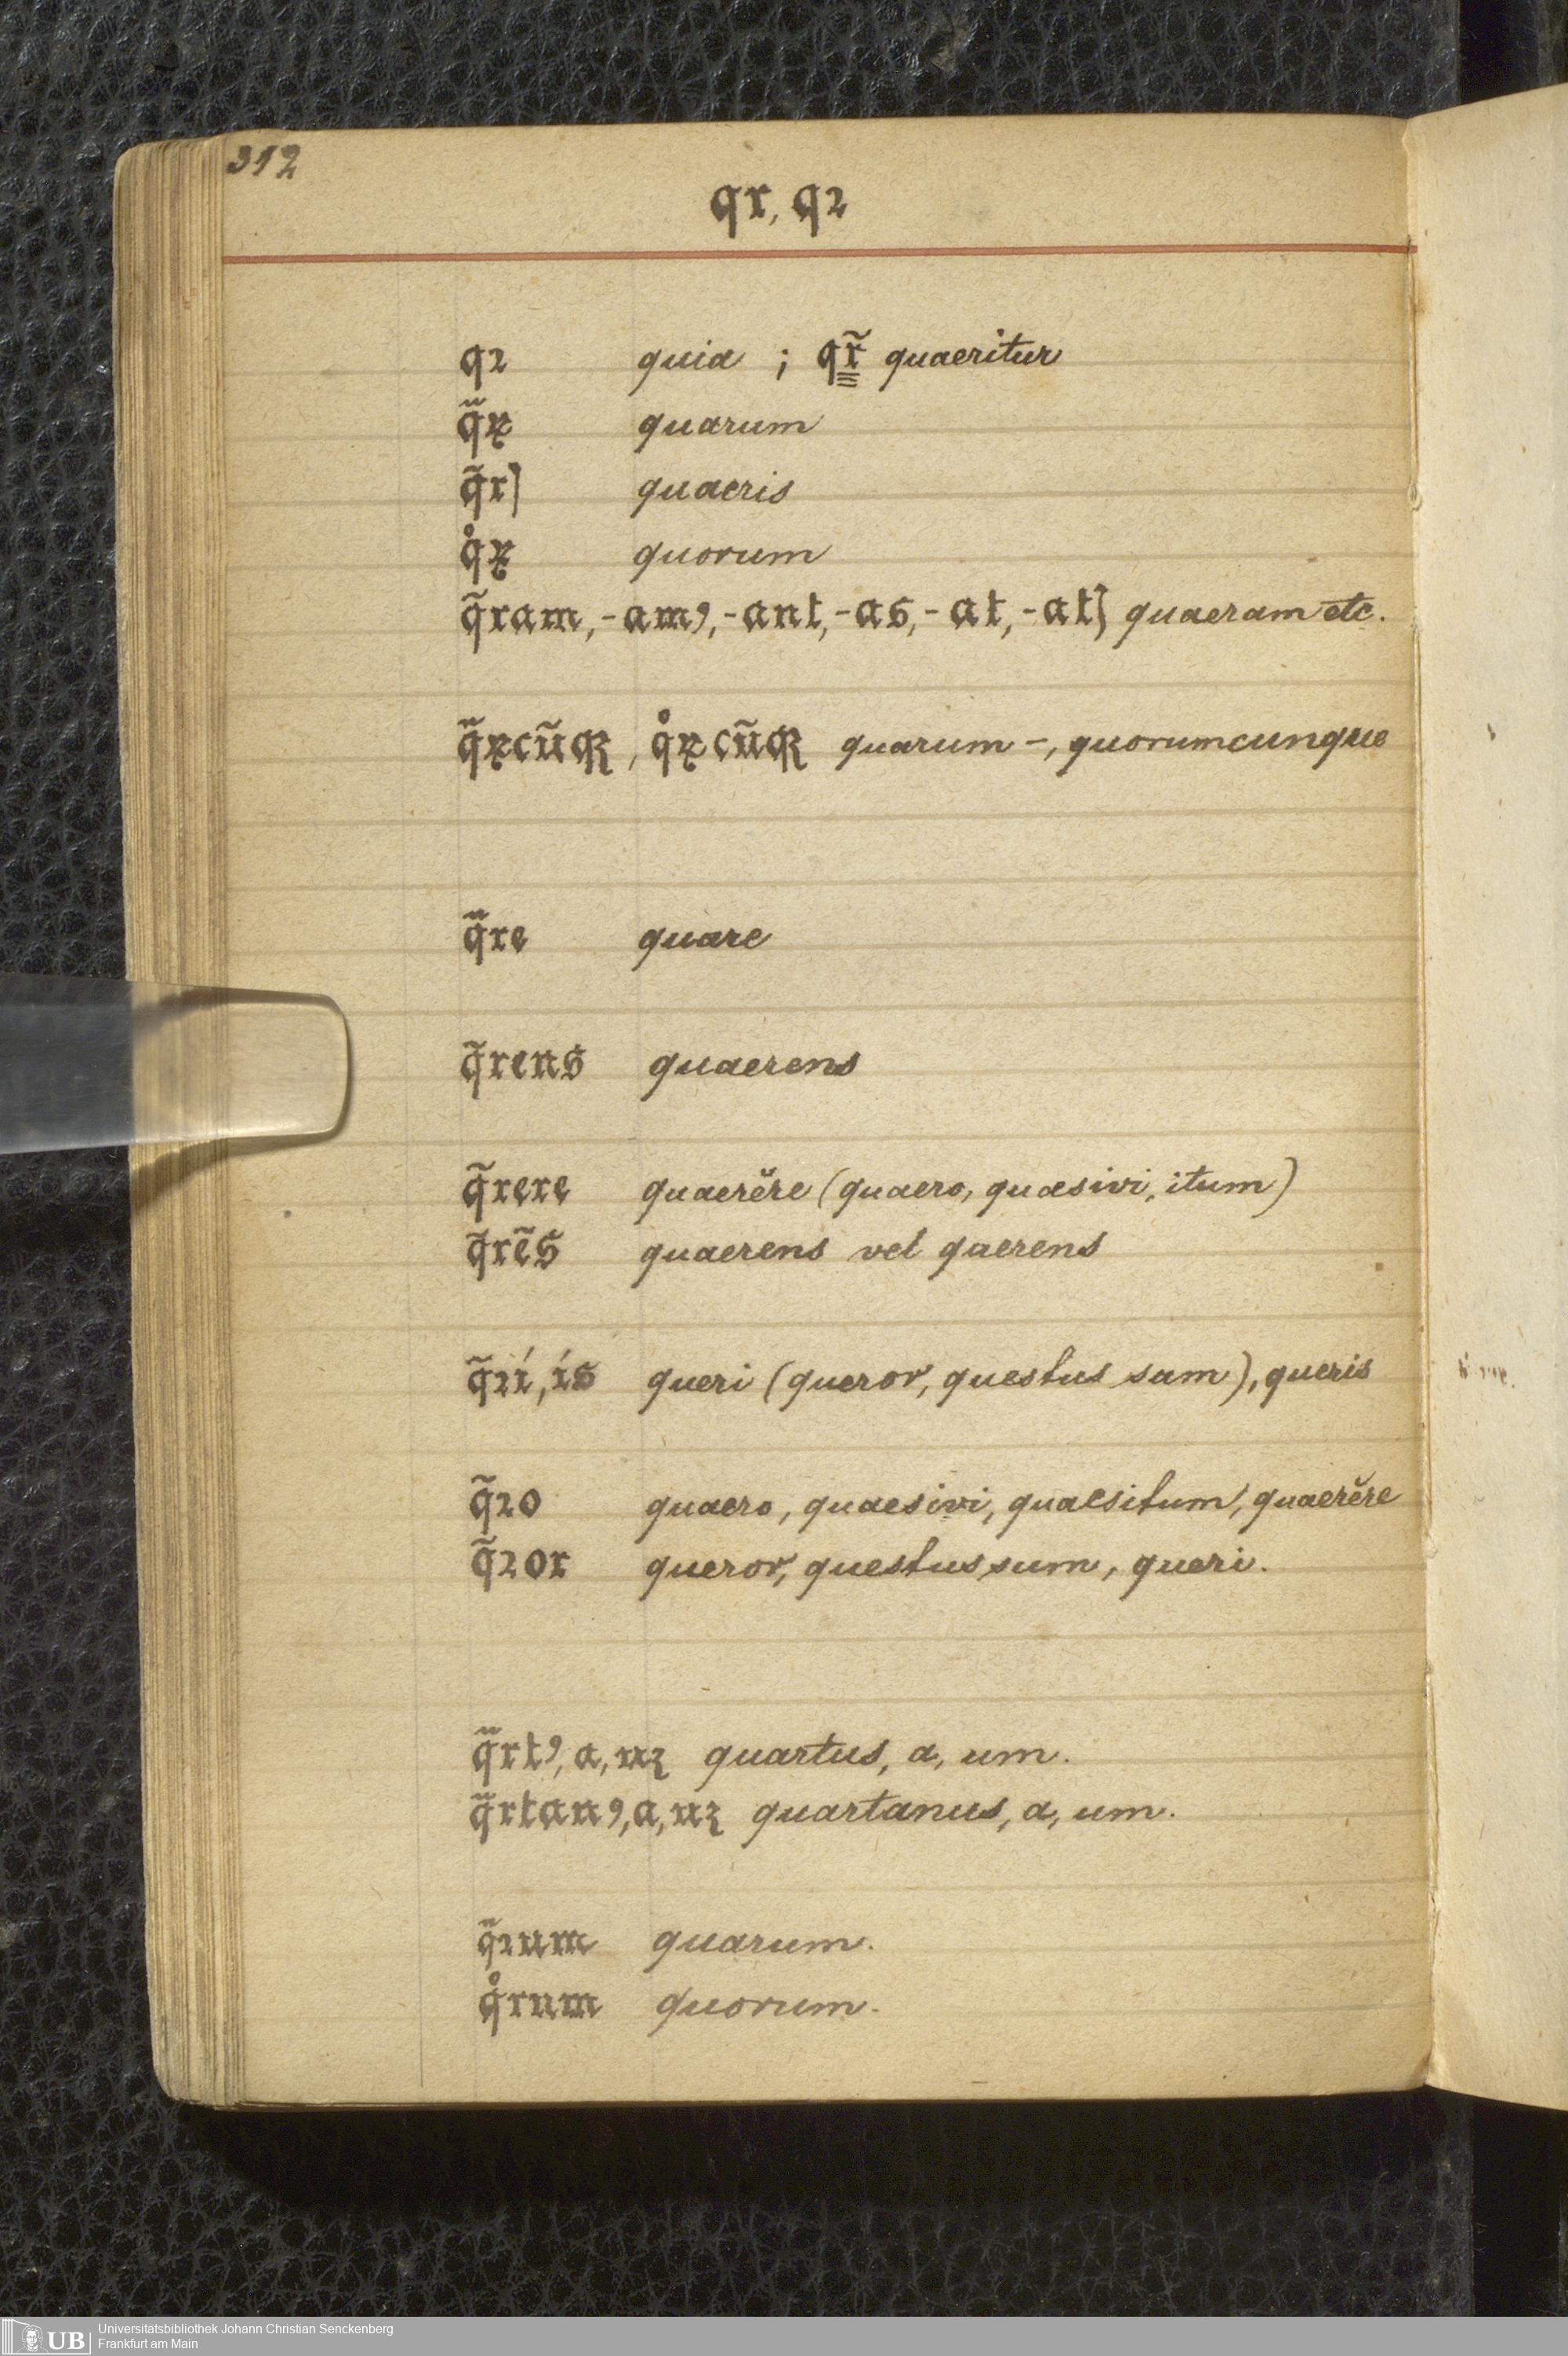 312
qr, qꝛ
qꝛ quia ; qr̃ quaeritur
q̃ꝝ quarum
q̃rꝭ quaeris
q̊ꝝ quorum
q̃ram, -amꝰ, -ant, -as, -at, -atꝭ quaeram etc.
q̃ꝝcũqꝫ, q̊ꝝcũqꝫ quarum-, quorumcunque
q̃re quare
q̃rens quaerens
q̃rere quaerĕre (quaero, quaesivi, itum)
q̃rẽs quaerens vel qaerens
q̃ꝛí, ís queri (queror, questus sum), queris
q̃ꝛo quaero, quaesivi, quaesitum, quaerĕre
q̃ꝛor queror, questus sum, queri.
q̃rtꝰ, a, uꝫ quartus, a, um.
q̃rtanꝰ, a, uꝫ quartanus, a, um.
q̃ꝛum quarum.
q̊rum quorum.
UB Universitätsbibliothek Johann Christian Senckenberg
Frankfurt am Main